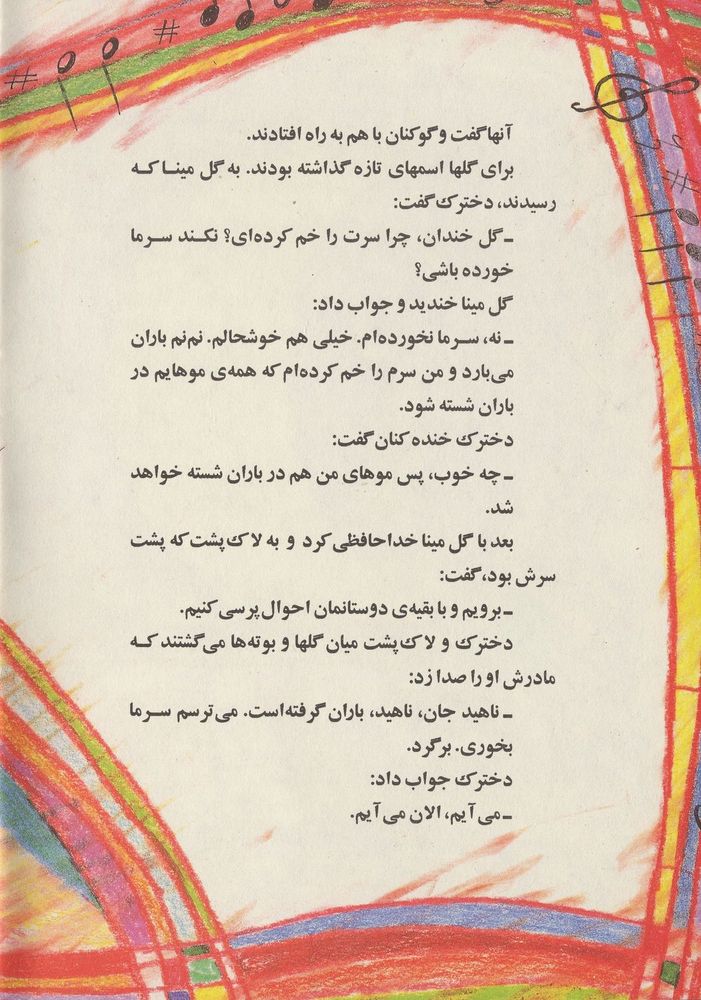 آنها گفت و گوکنان با هم به راه افتادند.
برای گلها اسمهای تازه گذاشته بودند. به گل مینا که
رسیدند، دخترک گفت:
ـ گل خندان، چرا سرت را خم کرده‌ای؟ نکند سرما
خورده باشی؟
گل مینا خندید و جواب داد:
ـ نه، سرما نخورده‌ام. خیلی هم خوشحالم. نم‌نم باران
می‌بارد و من سرم را خم کرده‌ام که همه‌ی موهایم در
باران شسته شود.
دخترک خنده کنان گفت:
ـ چه خوب، پس موهای من هم در باران شسته خواهد
شد.
بعد با گل مینا خداحافظی کرد و به لاک‌پشت که پشت
سرش بود، گفت:
ـ برویم و با بقیه‌ی دوستانمان احوال‌پرسی کنیم.
دخترک و لاک‌پشت میان گلها و بوته‌ها می‌گشتند که
مادرش او را صدا زد:
ـ ناهید جان، ناهید، باران گرفته‌است. می‌ترسم سرما
بخوری. برگرد.
دخترک جواب داد:
ـ می‌آیم، الان می‌آیم.